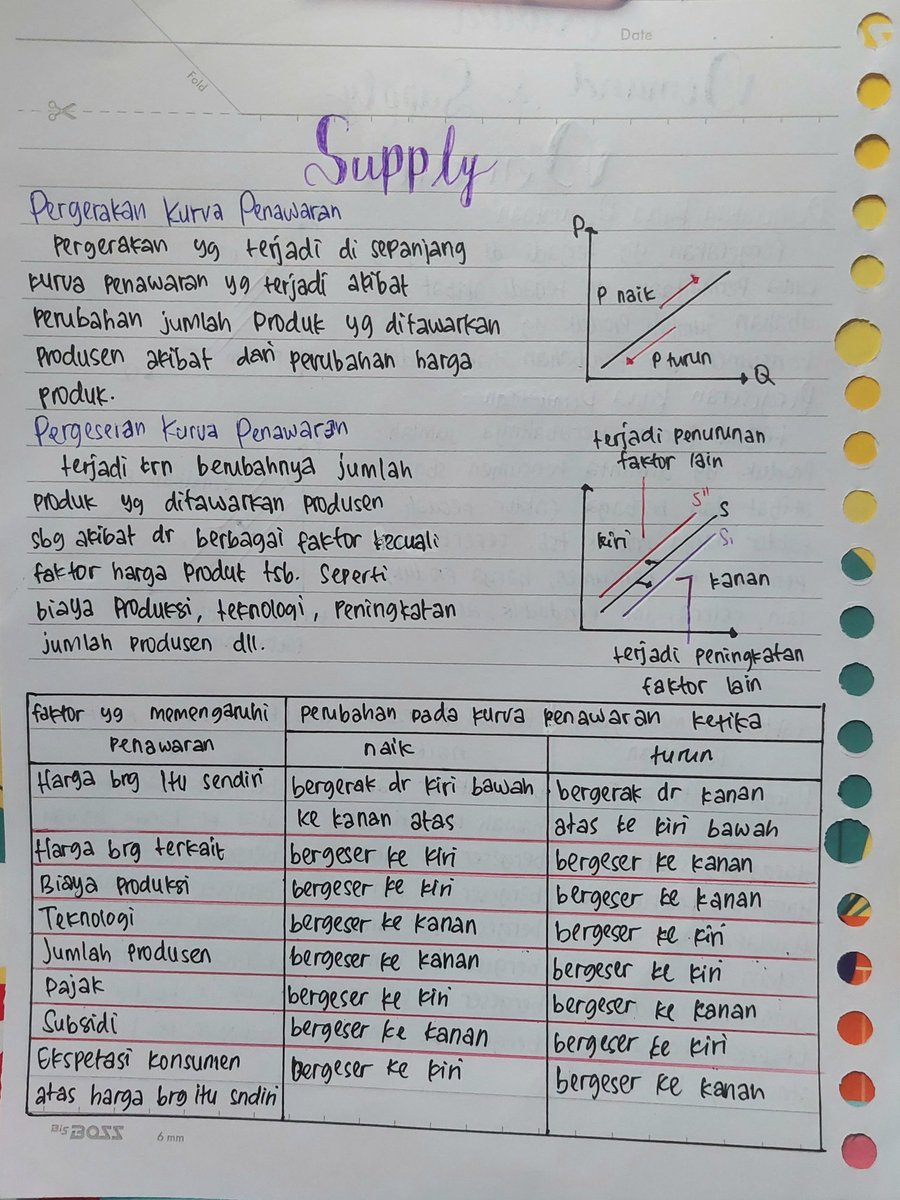 Date
Fold
Supply
Pergerakan Kurva Penawaran
Pergerakan yg terjadi di sepanjang
kurva penawaran yg terjadi akibat
perubahan jumlah produk yg ditawarkan
produsen akibat dari perubahan harga
produk.
P
P naik
P turun
Q
Pergeseran Kurva Penawaran
terjadi krn berubahnya jumlah
produk yg ditawarkan produsen
sbg akibat dr berbagai faktor kecuali
faktor harga produk tsb. Seperti
biaya produksi, teknologi, peningkatan
jumlah produsen dll.
terjadi penurunan
faktor lain
S"
S
S₁
kiri
kanan
terjadi peningkatan
faktor lain
faktor yg memengaruhi
penawaran
perubahan pada kurva penawaran ketika
naik
turun
Harga brg itu sendiri
bergerak dr kiri bawah
ke kanan atas
bergerak dr kanan
atas ke kiri bawah
Harga brg terkait
bergeser ke kiri
bergeser ke kanan
Biaya produksi
bergeser ke kiri
bergeser ke kanan
Teknologi
bergeser ke kanan
bergeser ke kiri
Jumlah produsen
bergeser ke kanan
bergeser ke kiri
Pajak
bergeser ke kiri
bergeser ke kanan
Subsidi
bergeser ke kanan
bergeser ke kiri
Ekspetasi konsumen
atas harga brg itu sndiri
bergeser ke kiri
bergeser ke kanan
Bis BOSS
6 mm